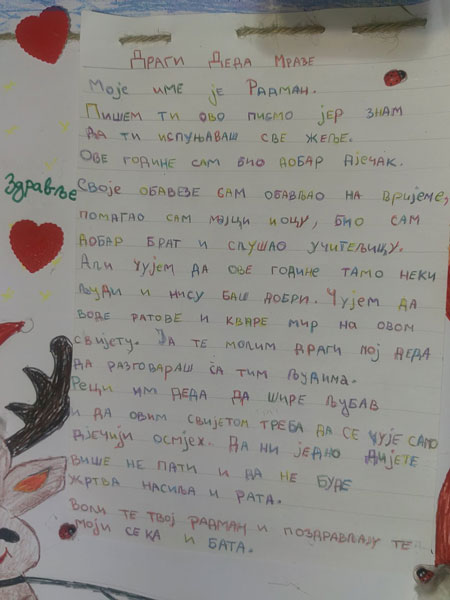 Драги Деда Мразе
Моје име је Радман.
Пишем ти ово писмо јер знам
да ти испуњаваш све жеље.
Ове године сам био добар дјечак.
Здравље
Своје обавезе сам обављао на вријеме,
помагао сам мајци и оцу, био сам
добар брат и слушао учитељицу.
Али чујем да ове године тамо неки
људи и нису баш добри. Чујем да
воде ратове и кваре мир на овом
свијету. За те молим драги мој деда
да разговараш са тим људима.
Реци им деда да шире љубав
и да овим свијетом треба да се чује само
дјечији осмјех. Да ни једно дијете
више не пати и да не буде
жртва насиља и рата.
Воли те твој Радман и поздрављају те
моји сека и бата.